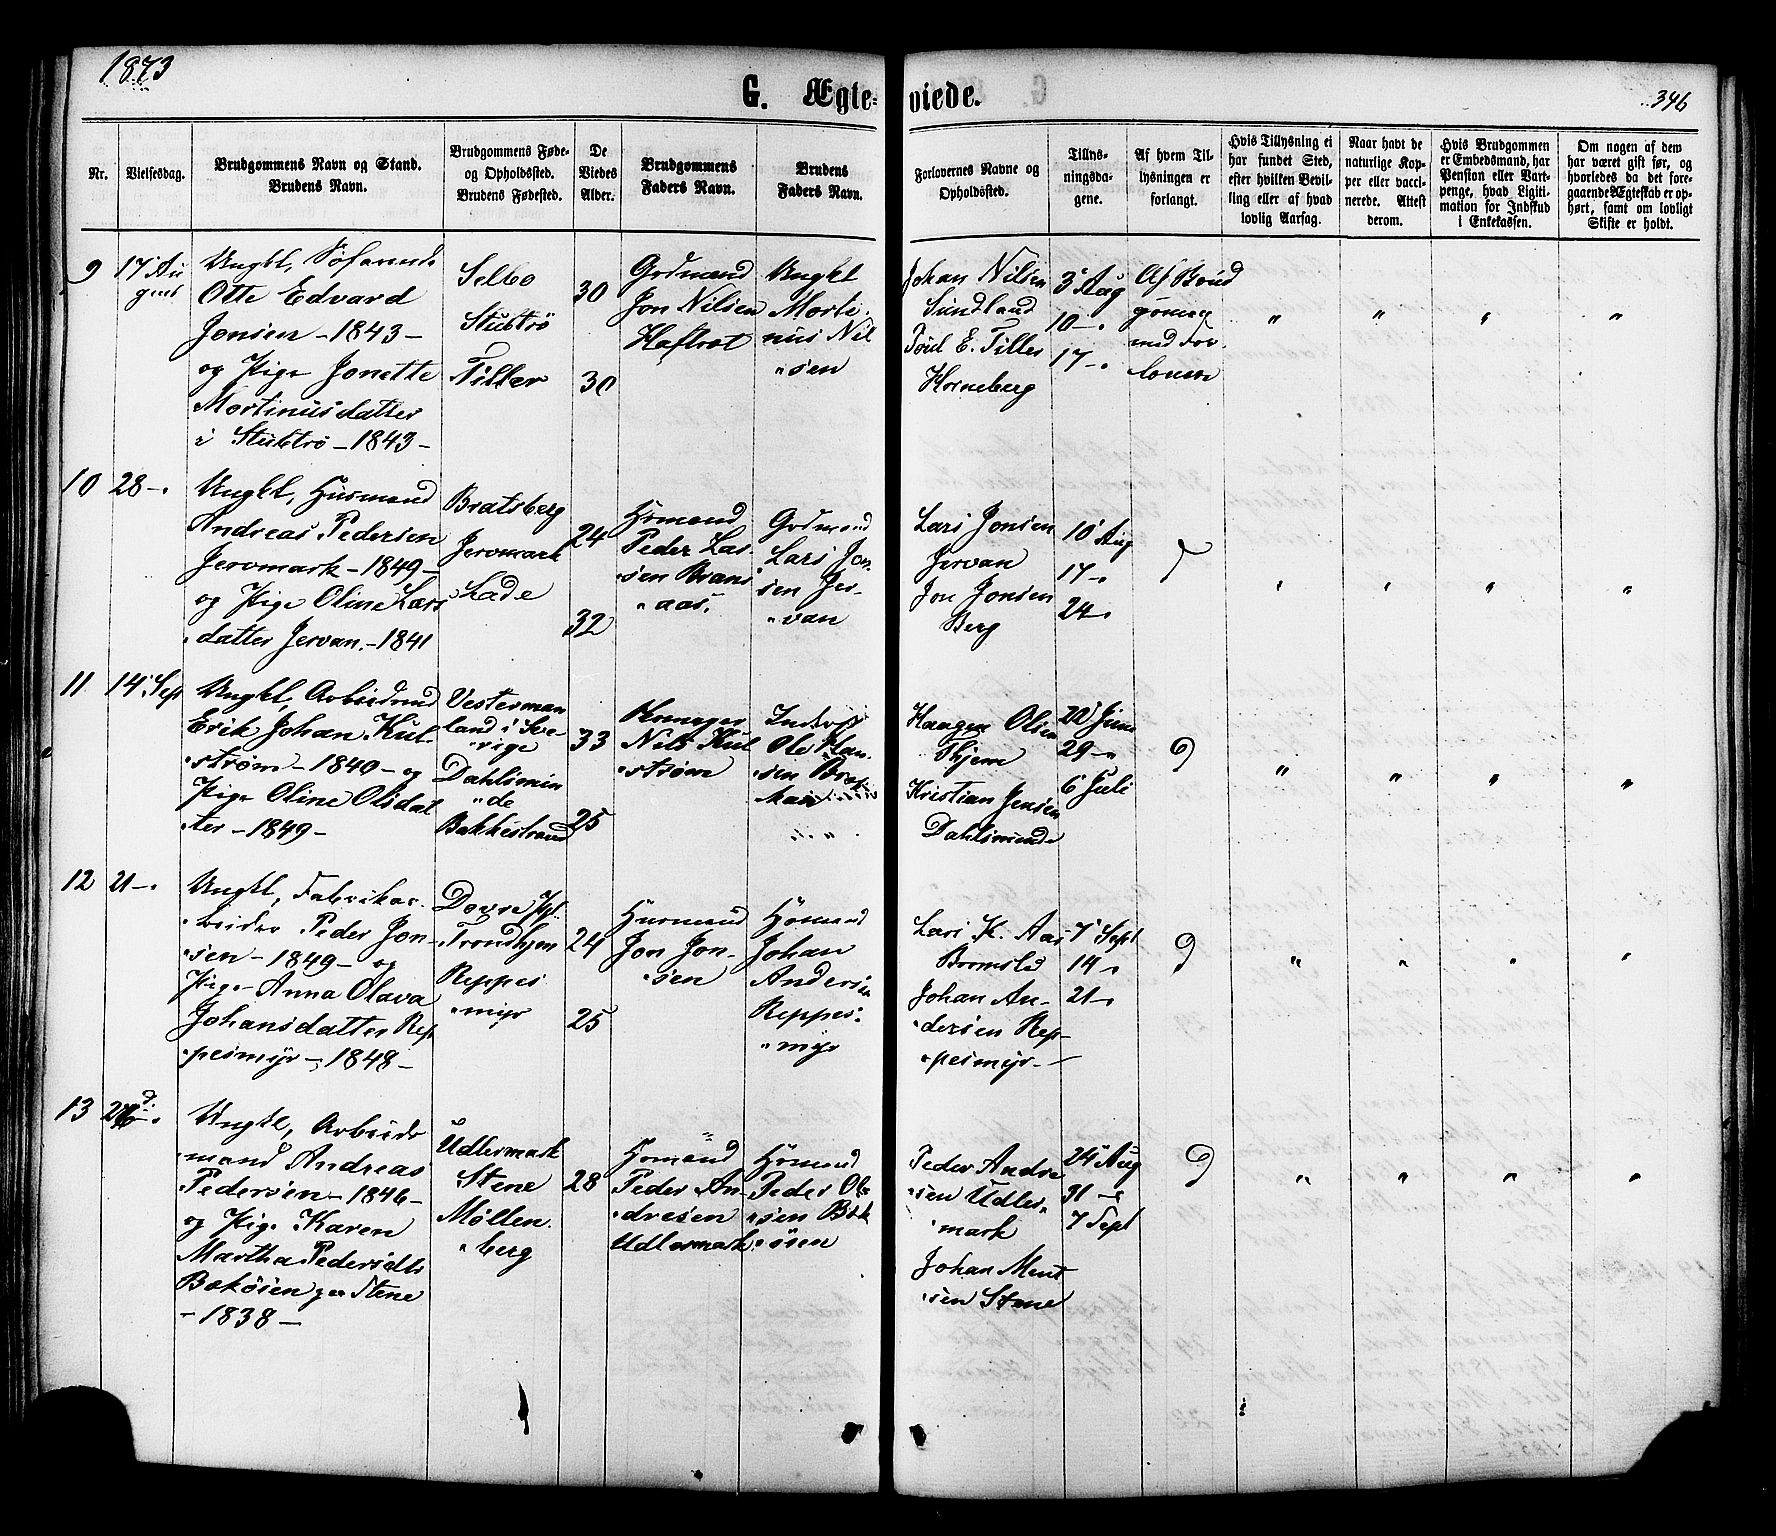 1873
G. Ægte= viede.
346
Nr.
Vielsesdag.
Brudgommens Navn og Stand.
Brudens Navn.
Brudgommens Føde-
og Opholdssted.
Brudens Fødested.
De
Viedes
Alder.
Brudgommens
Faders Navn.
Brudens
Faders Navn.
Forlovernes Navne og
Opholdssted.
Tillys-
ningsda-
gene.
Af hvem Til-
lysningen er
forlangt.
Hvis Tillysning ei
har fundet Sted,
efter hvilken Bevil-
ling eller af hvad
lovlig Aarsag.
Naar havt de
naturlige Kop-
per eller vacci-
nerede. Attest
derom.
Hvis Brudgommen
er Embedsmand, har
Pension eller Vart-
penge, hvad Ligiti-
mation for Indskud
i Enkekassen.
Om nogen af dem
har været gift før, og
hvorledes da det fore-
gaaende Ægteskab er op-
hørt, samt om lovligt
Skifte er holdt.
9
17 Au
gust
Ungkl,
Otte Edvard
Jonsen - 1843 -
og Pige Jonette
Mortinusdatter
i Stubtrø - 1843 -
Selbo
Stubtrø
Tiller
30
30
Grdmand
Jon Nilsen
Ungkl
Morti
nus Nil
"sen
Johan Nilsen
Sundland
Poul E. Tiller
Horneberg
3 Aug
10 -"
17 -"
Af Brud
gomen
med For
lovere
" " " "
10
28 -"
Ungkl, Husmand
Andreas Pedersen
Jervmark - 1849 -
og Pige Oline Lars
datter Jervan. - 1841
Bratsberg
Jervmark
Lade
24
32
Hsmand
Peder Las
sen Brans
"aas.
Grdmand
Lars Jon
sen Jer-
"van
Lars Jonsen
Jervan
Jon Jonsen
Berg
10 Aug
17 -"
24 "
" " " "
11
14 Sept
Ungkl, Arbeidmd
Erik Johan Kul-
strøm - 1840 - og
Pige Oline Olsdat
ter - 1849 -
Vesterman
land i Sve-
"rige
Dahlsmin
"de
Bakkestrand
33
25
Nils Kul
strøm
Ole Han
sen
Haagen Olsen
Skjem
Kristian Jensen
Dahlsminde
22 Juni
29 -"
6 Juli
" " " "
12
21 -"
Ungkl, Fabrikar-
beider Peder Jon-
sen - 1849 - og
Pige Anna Olava
Johansdatter Rep
pesmyr - 1848 -
Dovre
Trondhjem
Reppes
"myr
24
25
Husmand
Jon Jon-
"sen
Hsmand
Johan
Andersen
Reppes-
"myr
Lars K. Aas
Bromstd
Johan An-
dersen Rep-
pesmyr -
7 Sept
14 "
21 -"
" " " "
13
Ungkl, Arbeids
mand Andreas
Pedersen - 1846 -
og Pige Karen
Martha Pedersdtr
Bakøsen pr Stene
- 1838 -
Udlermark
Stene
Møllen
"berg
28
Hsmand
Peder An-
dresen
Udlermark
Hsmand
Peder Ol
sen Bak
øsen
Peder Andre
sen Udler
"mark
Johan Ment
sen Stene
24 Aug
31 -"
7 Sept
" " " "